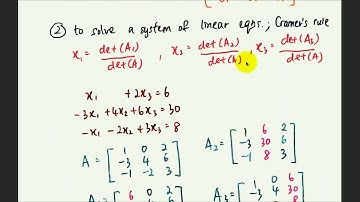 ② to solve a system of linear eqns.; Cramer's rule
x₁ = det(A₁)/det(A) , x₂ = det(A₂)/det(A) , x₃ = det(A₃)/det(A)
x₁ + 2x₃ = 6
-3x₁ + 4x₂ + 6x₃ = 30
-x₁ - 2x₂ + 3x₃ = 8
A = [1 0 2
-3 4 6
-1 -2 3]
A₂ = [1 6 2
-3 30 6
-1 8 3]
6 0 2
A₃ = [1 0 6
-3 4 30